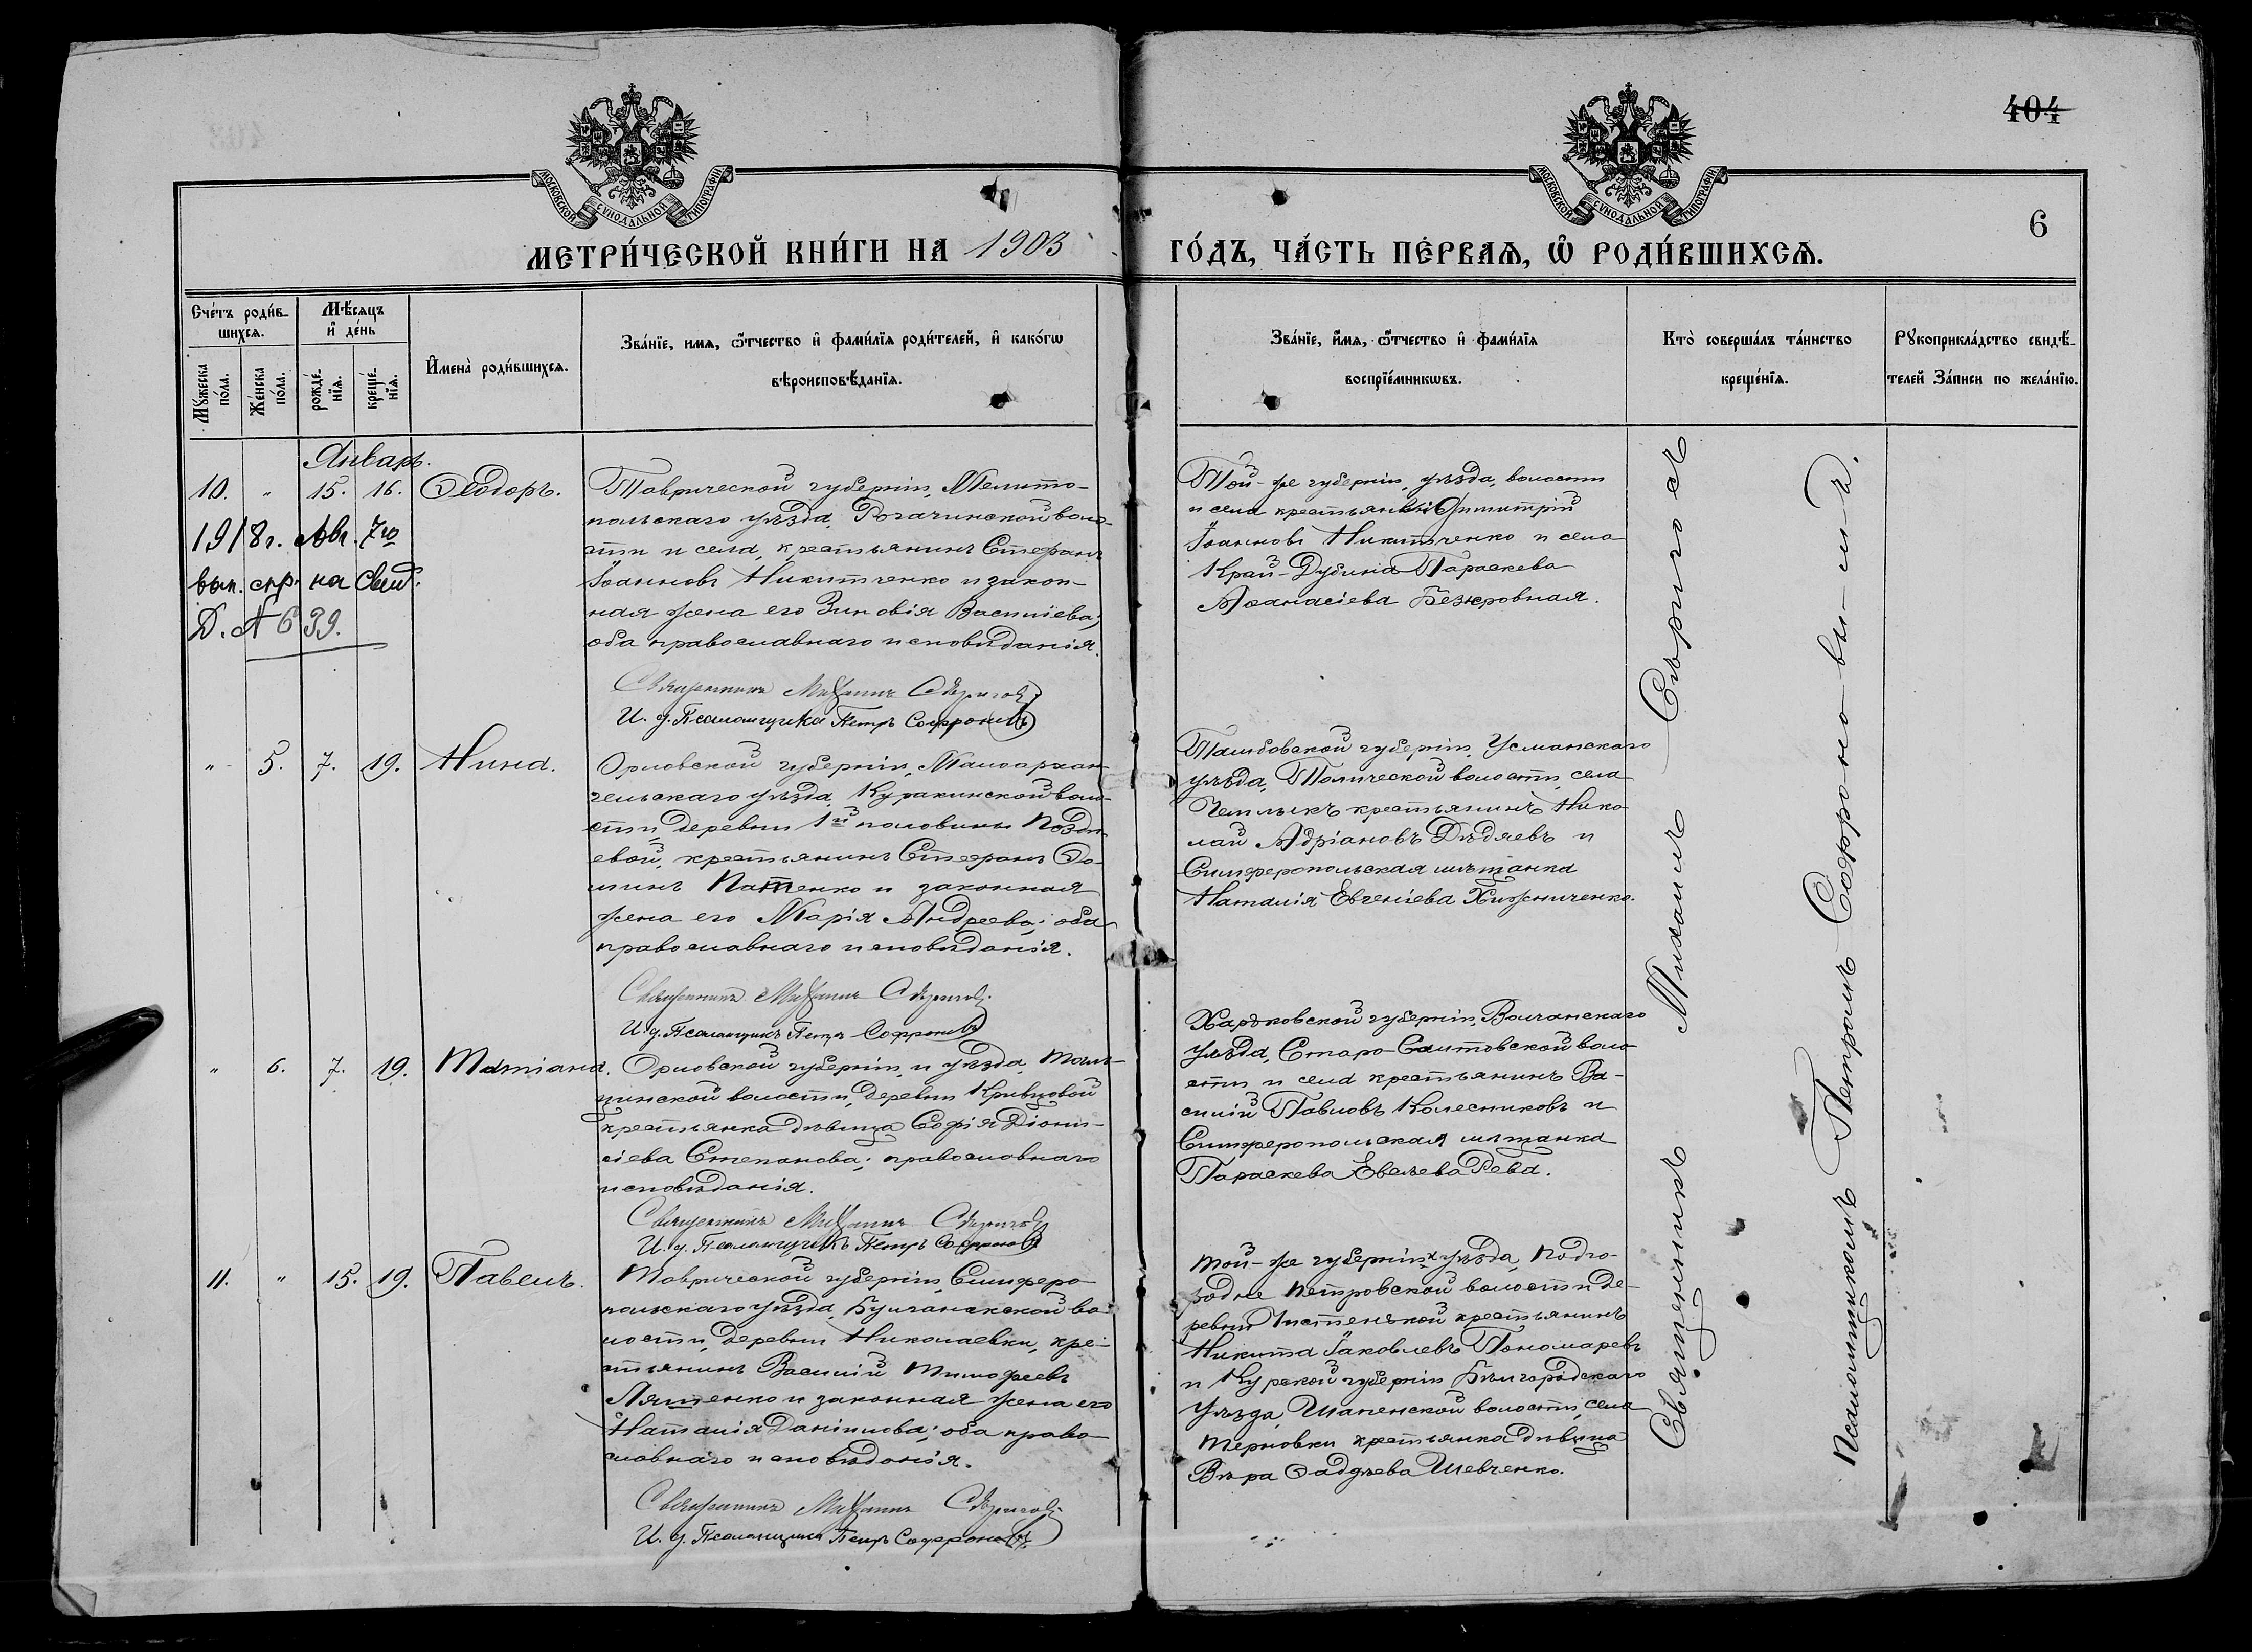 404
МОСКОВСКОЙ СѴНОДАЛЬНОЙ ТИПОГРАФІИ
МОСКОВСКОЙ СѴНОДАЛЬНОЙ ТИПОГРАФІИ
6
МЕТРИ́ЧЕСКОЙ КНИ́ГИ НА 1903 ГО́ДЪ, ЧА́СТЬ ПЕ́РВАѦ, Ѽ РОДИ́ВШИХСѦ.
Сче́тъ роди́в-
шихсѧ.
Мѣ́сѧцъ
и҆ де́нь
Мꙋжеска
по́ла.
Же́нска
по́ла.
рожде́-
нїѧ.
креще́-
нїѧ.
И҆мена̀ роди́вшихсѧ.
Зва́нїе, имѧ, ѻ҆́тчество и҆ фами́лїѧ роди́телей, и҆ како́гѡ
вѣроисповѣ́данїѧ.
Зва́нїе, и҆́мѧ, ѻ҆́тчество и҆ фами́лїѧ
воспрїе́мникѡвъ.
Кто̀ соверша́лъ та́инство
креще́нїѧ.
Рꙋкоприкла́дство свидѣ́-
телей За́писи по жела́нїю.
Январь.
10. „ 15. 16. Ѳеодоръ.
1918г. Авг. 7го
вып. спр. на свид.
Д. № 639.
Таврической губерніи, Мелито-
польскаго уѣзда, Рогачинской воло-
сти и села, крестьянинъ Стефанъ
Іоанновъ Никитченко и закон-
ная жена его Зиновія Василіева;
оба православнаго исповѣданія.
Священникъ Михаилъ Сѣриговъ
И. д. Псаломщика Петръ Софроновъ
Той-же губерніи, уѣзда, волости
и села крестьянинъ Димитрій
Іоанновъ Никитченко и села
Край-Дубина Параскева
Аѳанасіева Безкровная.
„ 5. 7. 19. Нина.
Орловской губерніи, Малоархан-
гельскаго уѣзда, Куракинской воло-
сти, деревни 1й половины Поздѣ-
евой, крестьянинъ Стефанъ Ѳо-
минъ Патенко и законная
жена его Марія Андреева; оба
православнаго исповѣданія.
Священникъ Михаилъ Сѣриговъ
И. д. Псаломщика Петръ Софроновъ
Тамбовской губерніи, Усманскаго
уѣзда, волости, села
крестьянинъ Нико-
лай Адріановъ Дѣдяевъ и
Симферопольская мѣщанка
Наталія Евгеніева Хижниченко.
„ 6. 7. 19. Татіана.
Орловской губерніи и уѣзда,
волости, деревни Кривцовой
крестьянка дѣвица Софія Діони-
сіева Степанова; православнаго
исповѣданія.
Священникъ Михаилъ Сѣриговъ
И. д. Псаломщика Петръ Софроновъ
Харьковской губерніи, Волчанскаго
уѣзда, Старо-Салтовской воло-
сти и села крестьянинъ Ва-
силій Павловъ Колесниковъ и
Симферопольская мѣщанка
Параскева Рева.
11. „ 15. 19. Павелъ.
Таврической губерніи, Симферо-
польскаго уѣзда, Булганакской во-
лости, деревни Николаевки, кре-
стьянинъ Василій Тимофеевъ
Ляшенко и законная жена его
Наталія Даніилова; оба право-
славнаго исповѣданія.
Священникъ Михаилъ Сѣриговъ
И. д. Псаломщика Петръ Софроновъ
Той-же губерніи и уѣзда, Подго-
родне Петровской волости де-
ревни Чистенькой крестьянинъ
Никита Іаковлевъ Пономаревъ
и Курской губерніи Бѣлгородскаго
уѣзда, Шапенской волости, села
Терновки крестьянка дѣвица
Вѣра Ѳаддѣева Шевченко.
Священникъ Михаилъ Сѣриговъ съ
Псаломщикомъ Петромъ Софроновымъ.